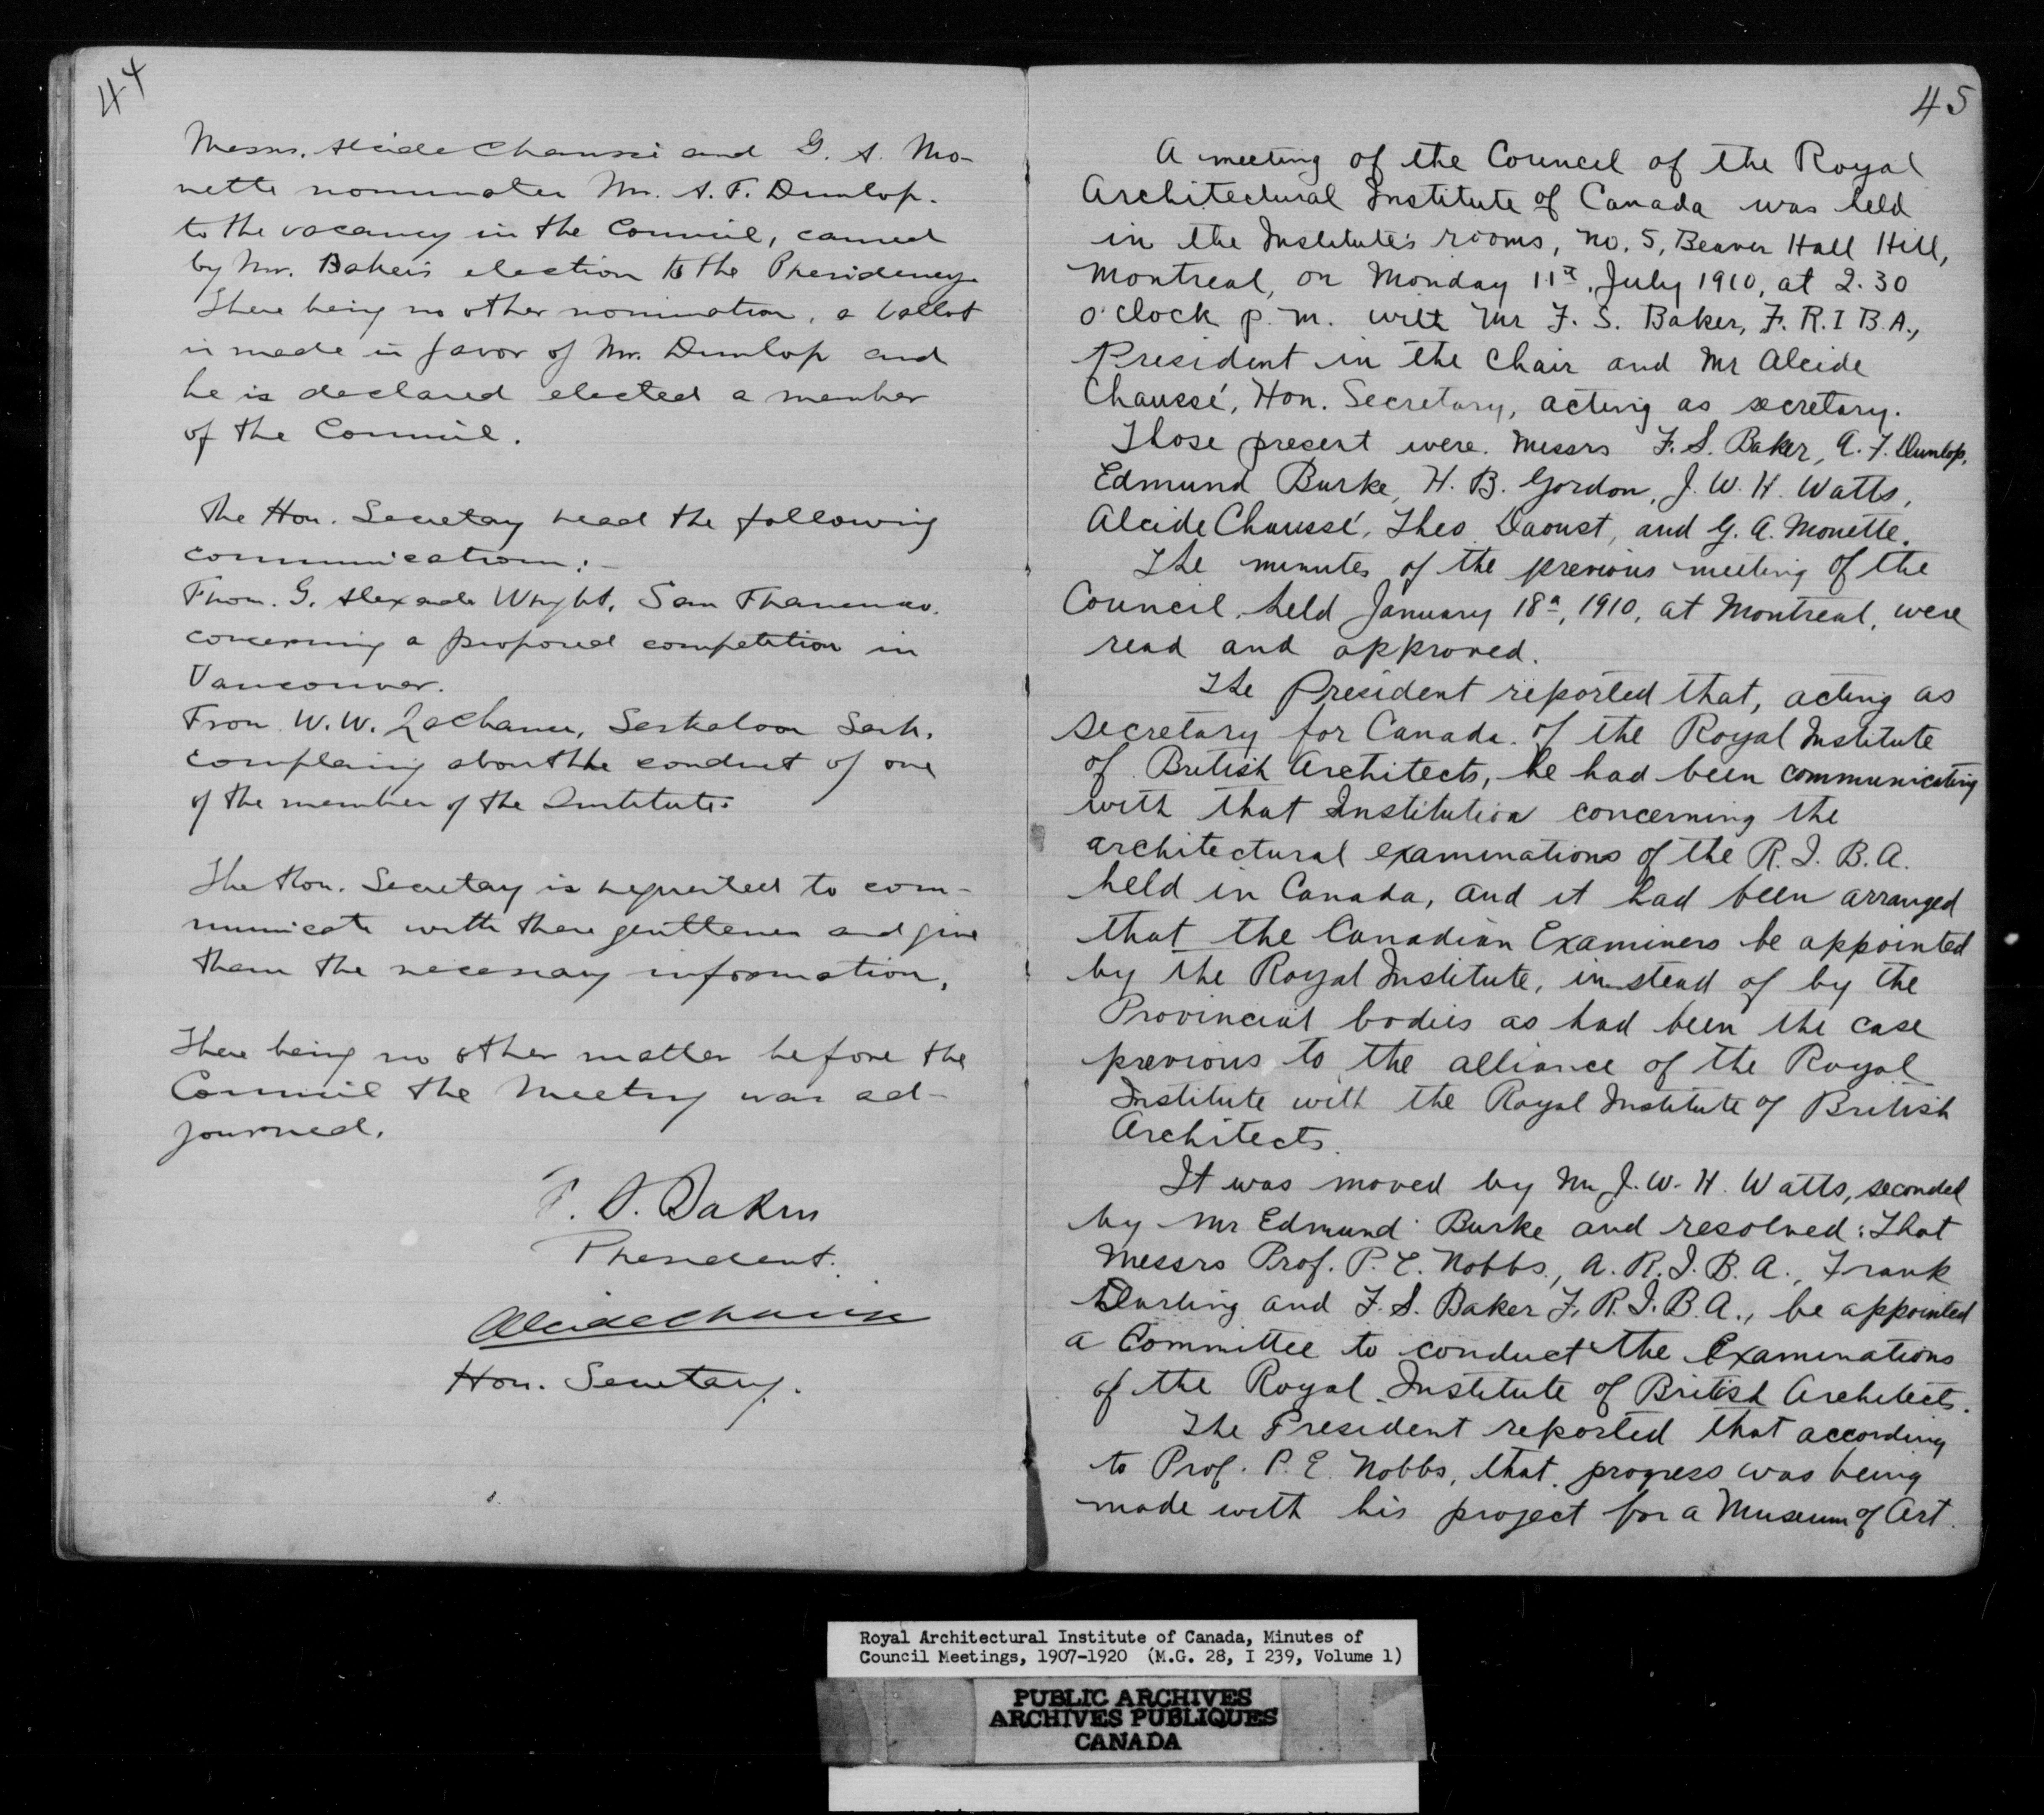 44
Messrs. Alcide Chaussé and G. A. Mo-
nette nominates Mr. A. F. Dunlop.
to the vacancy in the Council, caused
by Mr. Baker's election to the Presidency
There being no other nomination, a ballot
is made in favor of Mr. Dunlop and
he is declared elected a member
of the Council.
The Hon. Secretary read the following
communications:-
From G. Alexander Wright, San Francisco.
concerning a proposed competition in
Vancouver.
From W. W. Saskatoon Sask.
complaining about the conduct of one
of the member of the Institute.
The Hon. Secretary is requested to com-
municate with these gentlemen and give
them the necessary information.
There being no other matter before the
Council the Meeting was ad-
journed.
F. S. Baker
President.
Alcide Chaussé
Hon. Secretary.
45
A meeting of the Council of the Royal
Architectural Institute of Canada was held
in the Institute's rooms, No. 5, Beaver Hall Hill,
Montreal, on Monday 11th, July 1910, at 2.30
o'clock p.m. with Mr F. S. Baker, F.R.I B.A.,
President in the Chair and Mr Alcide
Chaussé, Hon. Secretary, acting as secretary.
Those present were. Messrs F. S. Baker, A. F. Dunlop,
Edmund Burke, H. B. Gordon, J. W. H. Watts,
Alcide Chaussé, Theo Daoust, and G. A. Monette.
The minutes of the previous meeting of the
Council, held January 18th, 1910, at Montreal, were
read and approved.
The President reported that, acting as
secretary for Canada of the Royal Institute
of British Architects, he had been communicating
with that Institution concerning the
architectural examinations of the R. I. B. A.
held in Canada, and it had been arranged
that the Canadian Examiners be appointed
by the Royal Institute, instead of by the
Provincial bodies as had been the case
previous to the alliance of the Royal
Institute with the Royal Institute of British
Architects.
It was moved by Mr J. W. H. Watts, seconded
by Mr Edmund Burke and resolved: That
Messrs Prof. P. E. Nobbs, A. R. I. B. A., Frank
Darling and F. S. Baker F. R. I. B. A., be appointed
a Committee to conduct the Examinations
of the Royal Institute of British Architects.
The President reported that according
to Prof. P. E. Nobbs, that progress was being
made with his project for a Museum of Art.
Royal Architectural Institute of Canada, Minutes of
Council Meetings, 1907-1920 (M.G. 28, I 239, Volume 1)
PUBLIC ARCHIVES
ARCHIVES PUBLIQUES
CANADA